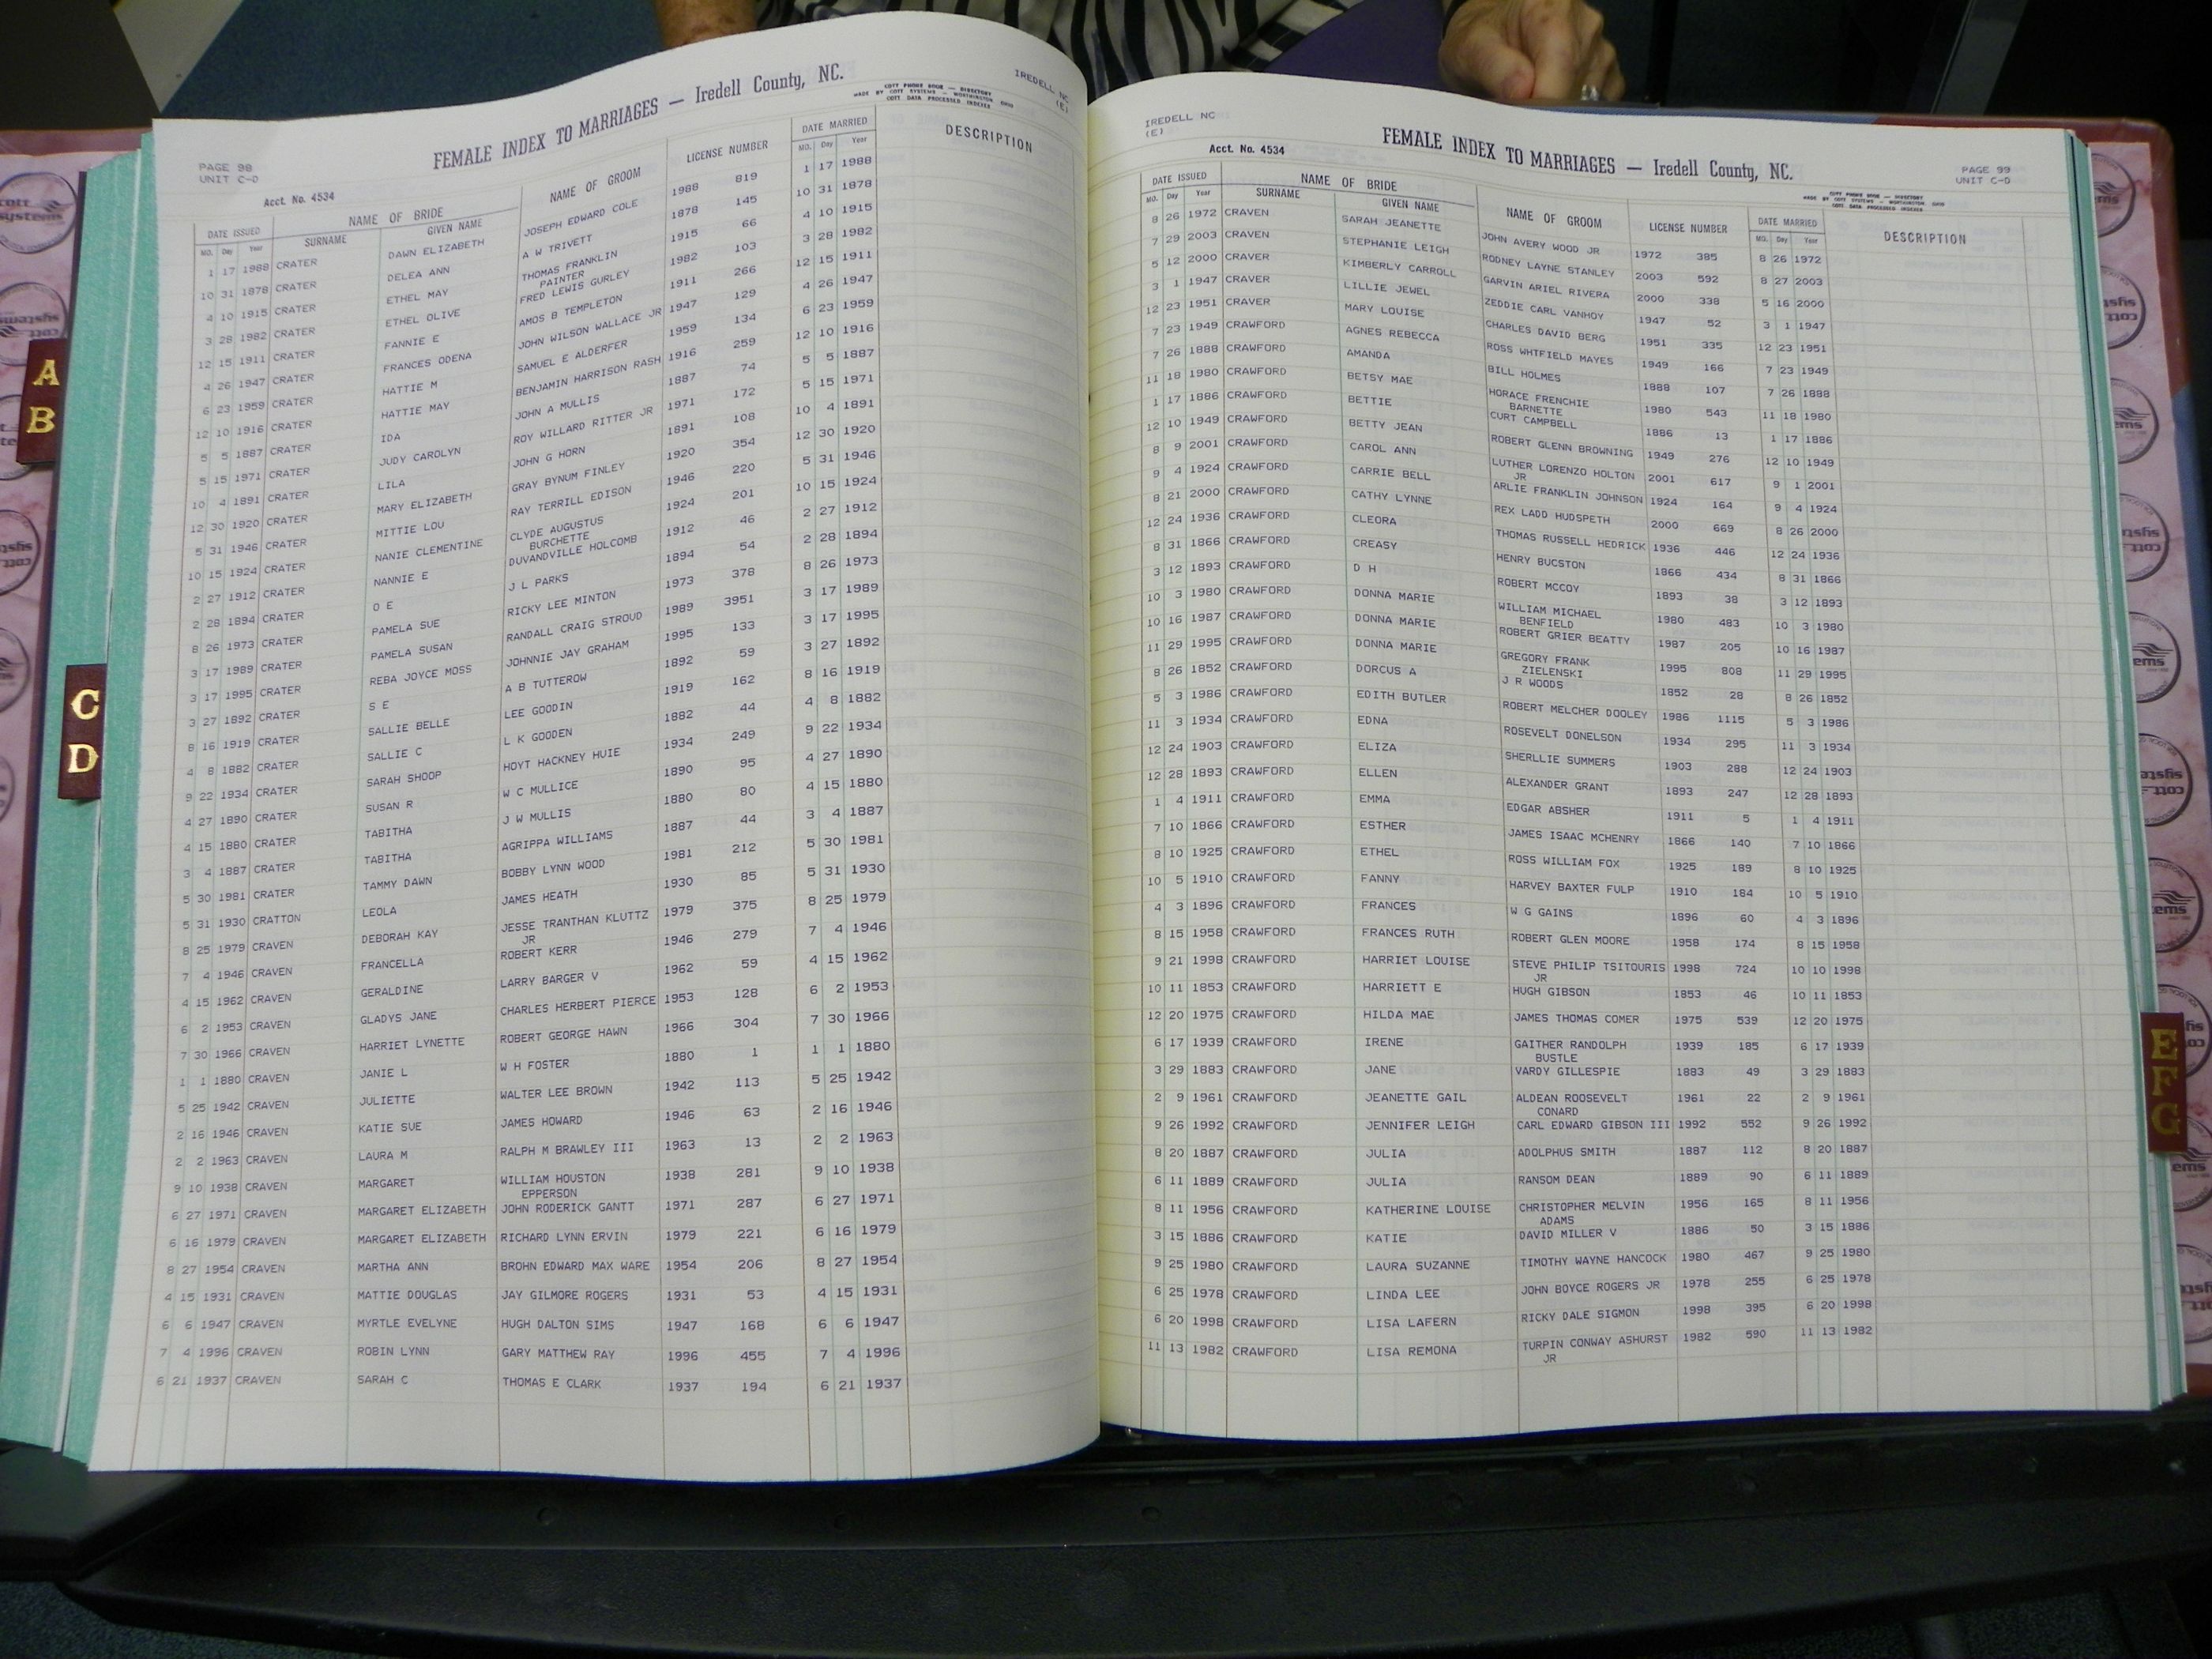 FEMALE INDEX TO MARRIAGES — Iredell County, NC.
IREDELL NC
(E)
COTT PHONE BOOK — DIRECTORY
MADE BY COTT SYSTEMS — WORTHINGTON OHIO
COTT DATA PROCESSED INDEXES
PAGE 98
UNIT C-D
Acct. No. 4534
DATE ISSUED NAME OF BRIDE NAME OF GROOM LICENSE NUMBER DATE MARRIED DESCRIPTION
MO. Day Year SURNAME GIVEN NAME MO. Day Year
1 17 1988 CRATER DAWN ELIZABETH JOSEPH EDWARD COLE 1988 819 1 17 1988
10 31 1878 CRATER DELEA ANN A W TRIVETT 1878 145 10 31 1878
4 10 1915 CRATER ETHEL MAY THOMAS FRANKLIN 1915 66 4 10 1915
PAINTER
3 28 1982 CRATER ETHEL OLIVE FRED LEWIS GURLEY 1982 103 3 28 1982
12 15 1911 CRATER FANNIE E AMOS B TEMPLETON 1911 266 12 15 1911
4 26 1947 CRATER FRANCES ODENA JOHN WILSON WALLACE JR 1947 129 4 26 1947
6 23 1959 CRATER HATTIE M SAMUEL E ALDERFER 1959 134 6 23 1959
12 10 1916 CRATER HATTIE MAY BENJAMIN HARRISON RASH 1916 259 12 10 1916
5 5 1887 CRATER IDA JOHN A MULLIS 1887 74 5 5 1887
5 15 1971 CRATER JUDY CAROLYN ROY WILLARD RITTER JR 1971 172 5 15 1971
10 4 1891 CRATER LILA JOHN G HORN 1891 108 10 4 1891
12 30 1920 CRATER MARY ELIZABETH GRAY BYNUM FINLEY 1920 354 12 30 1920
5 31 1946 CRATER MITTIE LOU RAY TERRILL EDISON 1946 220 5 31 1946
10 15 1924 CRATER NANIE CLEMENTINE CLYDE AUGUSTUS 1924 201 10 15 1924
BURCHETTE
2 27 1912 CRATER NANNIE E DUVANDVILLE HOLCOMB 1912 46 2 27 1912
2 28 1894 CRATER O E J L PARKS 1894 54 2 28 1894
8 26 1973 CRATER PAMELA SUE RICKY LEE MINTON 1973 378 8 26 1973
3 17 1989 CRATER PAMELA SUSAN RANDALL CRAIG STROUD 1989 3951 3 17 1989
3 17 1995 CRATER REBA JOYCE MOSS JOHNNIE JAY GRAHAM 1995 133 3 17 1995
3 27 1892 CRATER S E A B TUTTEROW 1892 59 3 27 1892
8 16 1919 CRATER SALLIE BELLE LEE GOODIN 1919 162 8 16 1919
4 8 1882 CRATER SALLIE C L K GOODEN 1882 44 4 8 1882
9 22 1934 CRATER SARAH SHOOP HOYT HACKNEY HUIE 1934 249 9 22 1934
4 27 1890 CRATER SUSAN R W C MULLICE 1890 95 4 27 1890
4 15 1880 CRATER TABITHA J W MULLIS 1880 80 4 15 1880
3 4 1887 CRATER TABITHA AGRIPPA WILLIAMS 1887 44 3 4 1887
5 30 1981 CRATER TAMMY DAWN BOBBY LYNN WOOD 1981 212 5 30 1981
5 31 1930 CRATTON LEOLA JAMES HEATH 1930 85 5 31 1930
8 25 1979 CRAVEN DEBORAH KAY JESSE TRANTHAN KLUTTZ 1979 375 8 25 1979
JR
7 4 1946 CRAVEN FRANCELLA ROBERT KERR 1946 279 7 4 1946
4 15 1962 CRAVEN GERALDINE LARRY BARGER V 1962 59 4 15 1962
6 2 1953 CRAVEN GLADYS JANE CHARLES HERBERT PIERCE 1953 128 6 2 1953
7 30 1966 CRAVEN HARRIET LYNETTE ROBERT GEORGE HAWN 1966 304 7 30 1966
1 1 1880 CRAVEN JANIE L W H FOSTER 1880 1 1 1 1880
5 25 1942 CRAVEN JULIETTE WALTER LEE BROWN 1942 113 5 25 1942
2 16 1946 CRAVEN KATIE SUE JAMES HOWARD 1946 63 2 16 1946
2 2 1963 CRAVEN LAURA M RALPH M BRAWLEY III 1963 13 2 2 1963
9 10 1938 CRAVEN MARGARET WILLIAM HOUSTON 1938 281 9 10 1938
EPPERSON
6 27 1971 CRAVEN MARGARET ELIZABETH JOHN RODERICK GANTT 1971 287 6 27 1971
6 16 1979 CRAVEN MARGARET ELIZABETH RICHARD LYNN ERVIN 1979 221 6 16 1979
8 27 1954 CRAVEN MARTHA ANN BROHN EDWARD MAX WARE 1954 206 8 27 1954
4 15 1931 CRAVEN MATTIE DOUGLAS JAY GILMORE ROGERS 1931 53 4 15 1931
6 6 1947 CRAVEN MYRTLE EVELYNE HUGH DALTON SIMS 1947 168 6 6 1947
7 4 1996 CRAVEN ROBIN LYNN GARY MATTHEW RAY 1996 455 7 4 1996
6 21 1937 CRAVEN SARAH C THOMAS E CLARK 1937 194 6 21 1937
A
B
C
D
IREDELL NC
(E)
FEMALE INDEX TO MARRIAGES — Iredell County, NC.
Acct. No. 4534
PAGE 99
UNIT C-D
COTT PHONE BOOK — DIRECTORY
MADE BY COTT SYSTEMS — WORTHINGTON OHIO
COTT DATA PROCESSED INDEXES
DATE ISSUED NAME OF BRIDE NAME OF GROOM LICENSE NUMBER DATE MARRIED DESCRIPTION
MO. Day Year SURNAME GIVEN NAME MO. Day Year
8 26 1972 CRAVEN SARAH JEANETTE JOHN AVERY WOOD JR 1972 385 8 26 1972
7 29 2003 CRAVEN STEPHANIE LEIGH RODNEY LAYNE STANLEY 2003 592 8 27 2003
5 12 2000 CRAVER KIMBERLY CARROLL GARVIN ARIEL RIVERA 2000 338 5 16 2000
3 1 1947 CRAVER LILLIE JEWEL ZEDDIE CARL VANHOY 1947 52 3 1 1947
12 23 1951 CRAVER MARY LOUISE CHARLES DAVID BERG 1951 335 12 23 1951
7 23 1949 CRAWFORD AGNES REBECCA ROSS WHTFIELD MAYES 1949 166 7 23 1949
7 26 1888 CRAWFORD AMANDA BILL HOLMES 1888 107 7 26 1888
11 18 1980 CRAWFORD BETSY MAE HORACE FRENCHIE 1980 543 11 18 1980
BARNETTE
1 17 1886 CRAWFORD BETTIE CURT CAMPBELL 1886 13 1 17 1886
12 10 1949 CRAWFORD BETTY JEAN ROBERT GLENN BROWNING 1949 276 12 10 1949
8 9 2001 CRAWFORD CAROL ANN LUTHER LORENZO HOLTON 2001 617 9 1 2001
JR
9 4 1924 CRAWFORD CARRIE BELL ARLIE FRANKLIN JOHNSON 1924 164 9 4 1924
8 21 2000 CRAWFORD CATHY LYNNE REX LADD HUDSPETH 2000 669 8 26 2000
12 24 1936 CRAWFORD CLEORA THOMAS RUSSELL HEDRICK 1936 446 12 24 1936
8 31 1866 CRAWFORD CREASY HENRY BUCSTON 1866 434 8 31 1866
3 12 1893 CRAWFORD D H ROBERT MCCOY 1893 38 3 12 1893
10 3 1980 CRAWFORD DONNA MARIE WILLIAM MICHAEL 1980 483 10 3 1980
BENFIELD
10 16 1987 CRAWFORD DONNA MARIE ROBERT GRIER BEATTY 1987 205 10 16 1987
11 29 1995 CRAWFORD DONNA MARIE GREGORY FRANK 1995 808 11 29 1995
ZIELENSKI
8 26 1852 CRAWFORD DORCUS A J R WOODS 1852 28 8 26 1852
5 3 1986 CRAWFORD EDITH BUTLER ROBERT MELCHER DOOLEY 1986 1115 5 3 1986
11 3 1934 CRAWFORD EDNA ROSEVELT DONELSON 1934 295 11 3 1934
12 24 1903 CRAWFORD ELIZA SHERLLIE SUMMERS 1903 288 12 24 1903
12 28 1893 CRAWFORD ELLEN ALEXANDER GRANT 1893 247 12 28 1893
1 4 1911 CRAWFORD EMMA EDGAR ABSHER 1911 5 1 4 1911
7 10 1866 CRAWFORD ESTHER JAMES ISAAC MCHENRY 1866 140 7 10 1866
8 10 1925 CRAWFORD ETHEL ROSS WILLIAM FOX 1925 189 8 10 1925
10 5 1910 CRAWFORD FANNY HARVEY BAXTER FULP 1910 184 10 5 1910
4 3 1896 CRAWFORD FRANCES W G GAINS 1896 60 4 3 1896
8 15 1958 CRAWFORD FRANCES RUTH ROBERT GLEN MOORE 1958 174 8 15 1958
9 21 1998 CRAWFORD HARRIET LOUISE STEVE PHILIP TSITOURIS 1998 724 10 10 1998
JR
10 11 1853 CRAWFORD HARRIETT E HUGH GIBSON 1853 46 10 11 1853
12 20 1975 CRAWFORD HILDA MAE JAMES THOMAS COMER 1975 539 12 20 1975
6 17 1939 CRAWFORD IRENE GAITHER RANDOLPH 1939 185 6 17 1939
BUSTLE
3 29 1883 CRAWFORD JANE VARDY GILLESPIE 1883 49 3 29 1883
2 9 1961 CRAWFORD JEANETTE GAIL ALDEAN ROOSEVELT 1961 22 2 9 1961
CONARD
9 26 1992 CRAWFORD JENNIFER LEIGH CARL EDWARD GIBSON III 1992 552 9 26 1992
8 20 1887 CRAWFORD JULIA ADOLPHUS SMITH 1887 112 8 20 1887
6 11 1889 CRAWFORD JULIA RANSOM DEAN 1889 90 6 11 1889
8 11 1956 CRAWFORD KATHERINE LOUISE CHRISTOPHER MELVIN 1956 165 8 11 1956
ADAMS
3 15 1886 CRAWFORD KATIE DAVID MILLER V 1886 50 3 15 1886
9 25 1980 CRAWFORD LAURA SUZANNE TIMOTHY WAYNE HANCOCK 1980 467 9 25 1980
6 25 1978 CRAWFORD LINDA LEE JOHN BOYCE ROGERS JR 1978 255 6 25 1978
6 20 1998 CRAWFORD LISA LAFERN RICKY DALE SIGMON 1998 395 6 20 1998
11 13 1982 CRAWFORD LISA REMONA TURPIN CONWAY ASHURST 1982 590 11 13 1982
JR
E
F
G